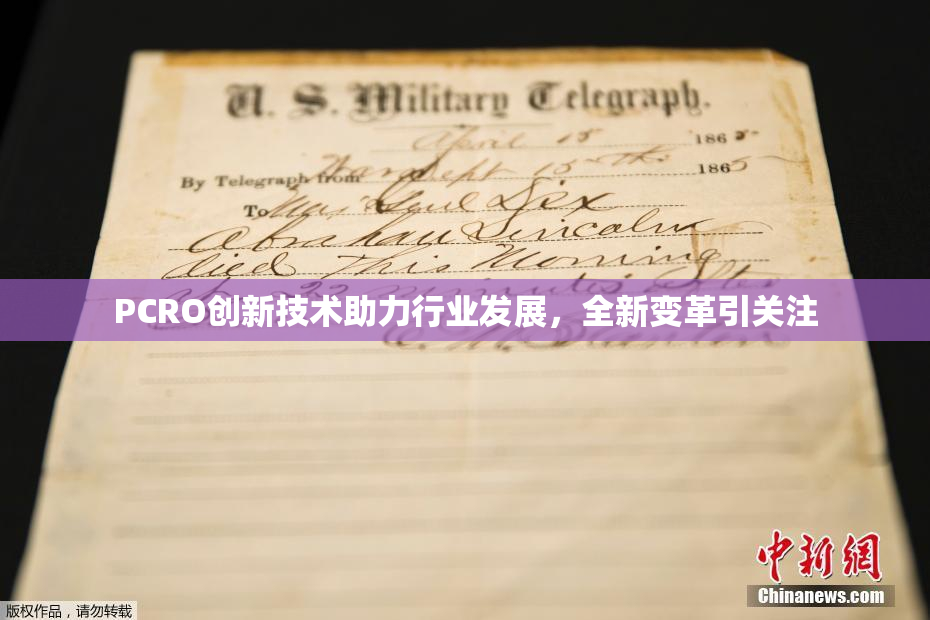 U. S. Military Telegraph.
April 15 1865
By Telegraph from War Dept 15th 1865
To Maj Genl Dix
Abraham Lincoln
died This Morning
22 minutes after
PCRO创新技术助力行业发展，全新变革引关注
E. M. Stanton
中新网
Chinanews.com
版权作品，请勿转载